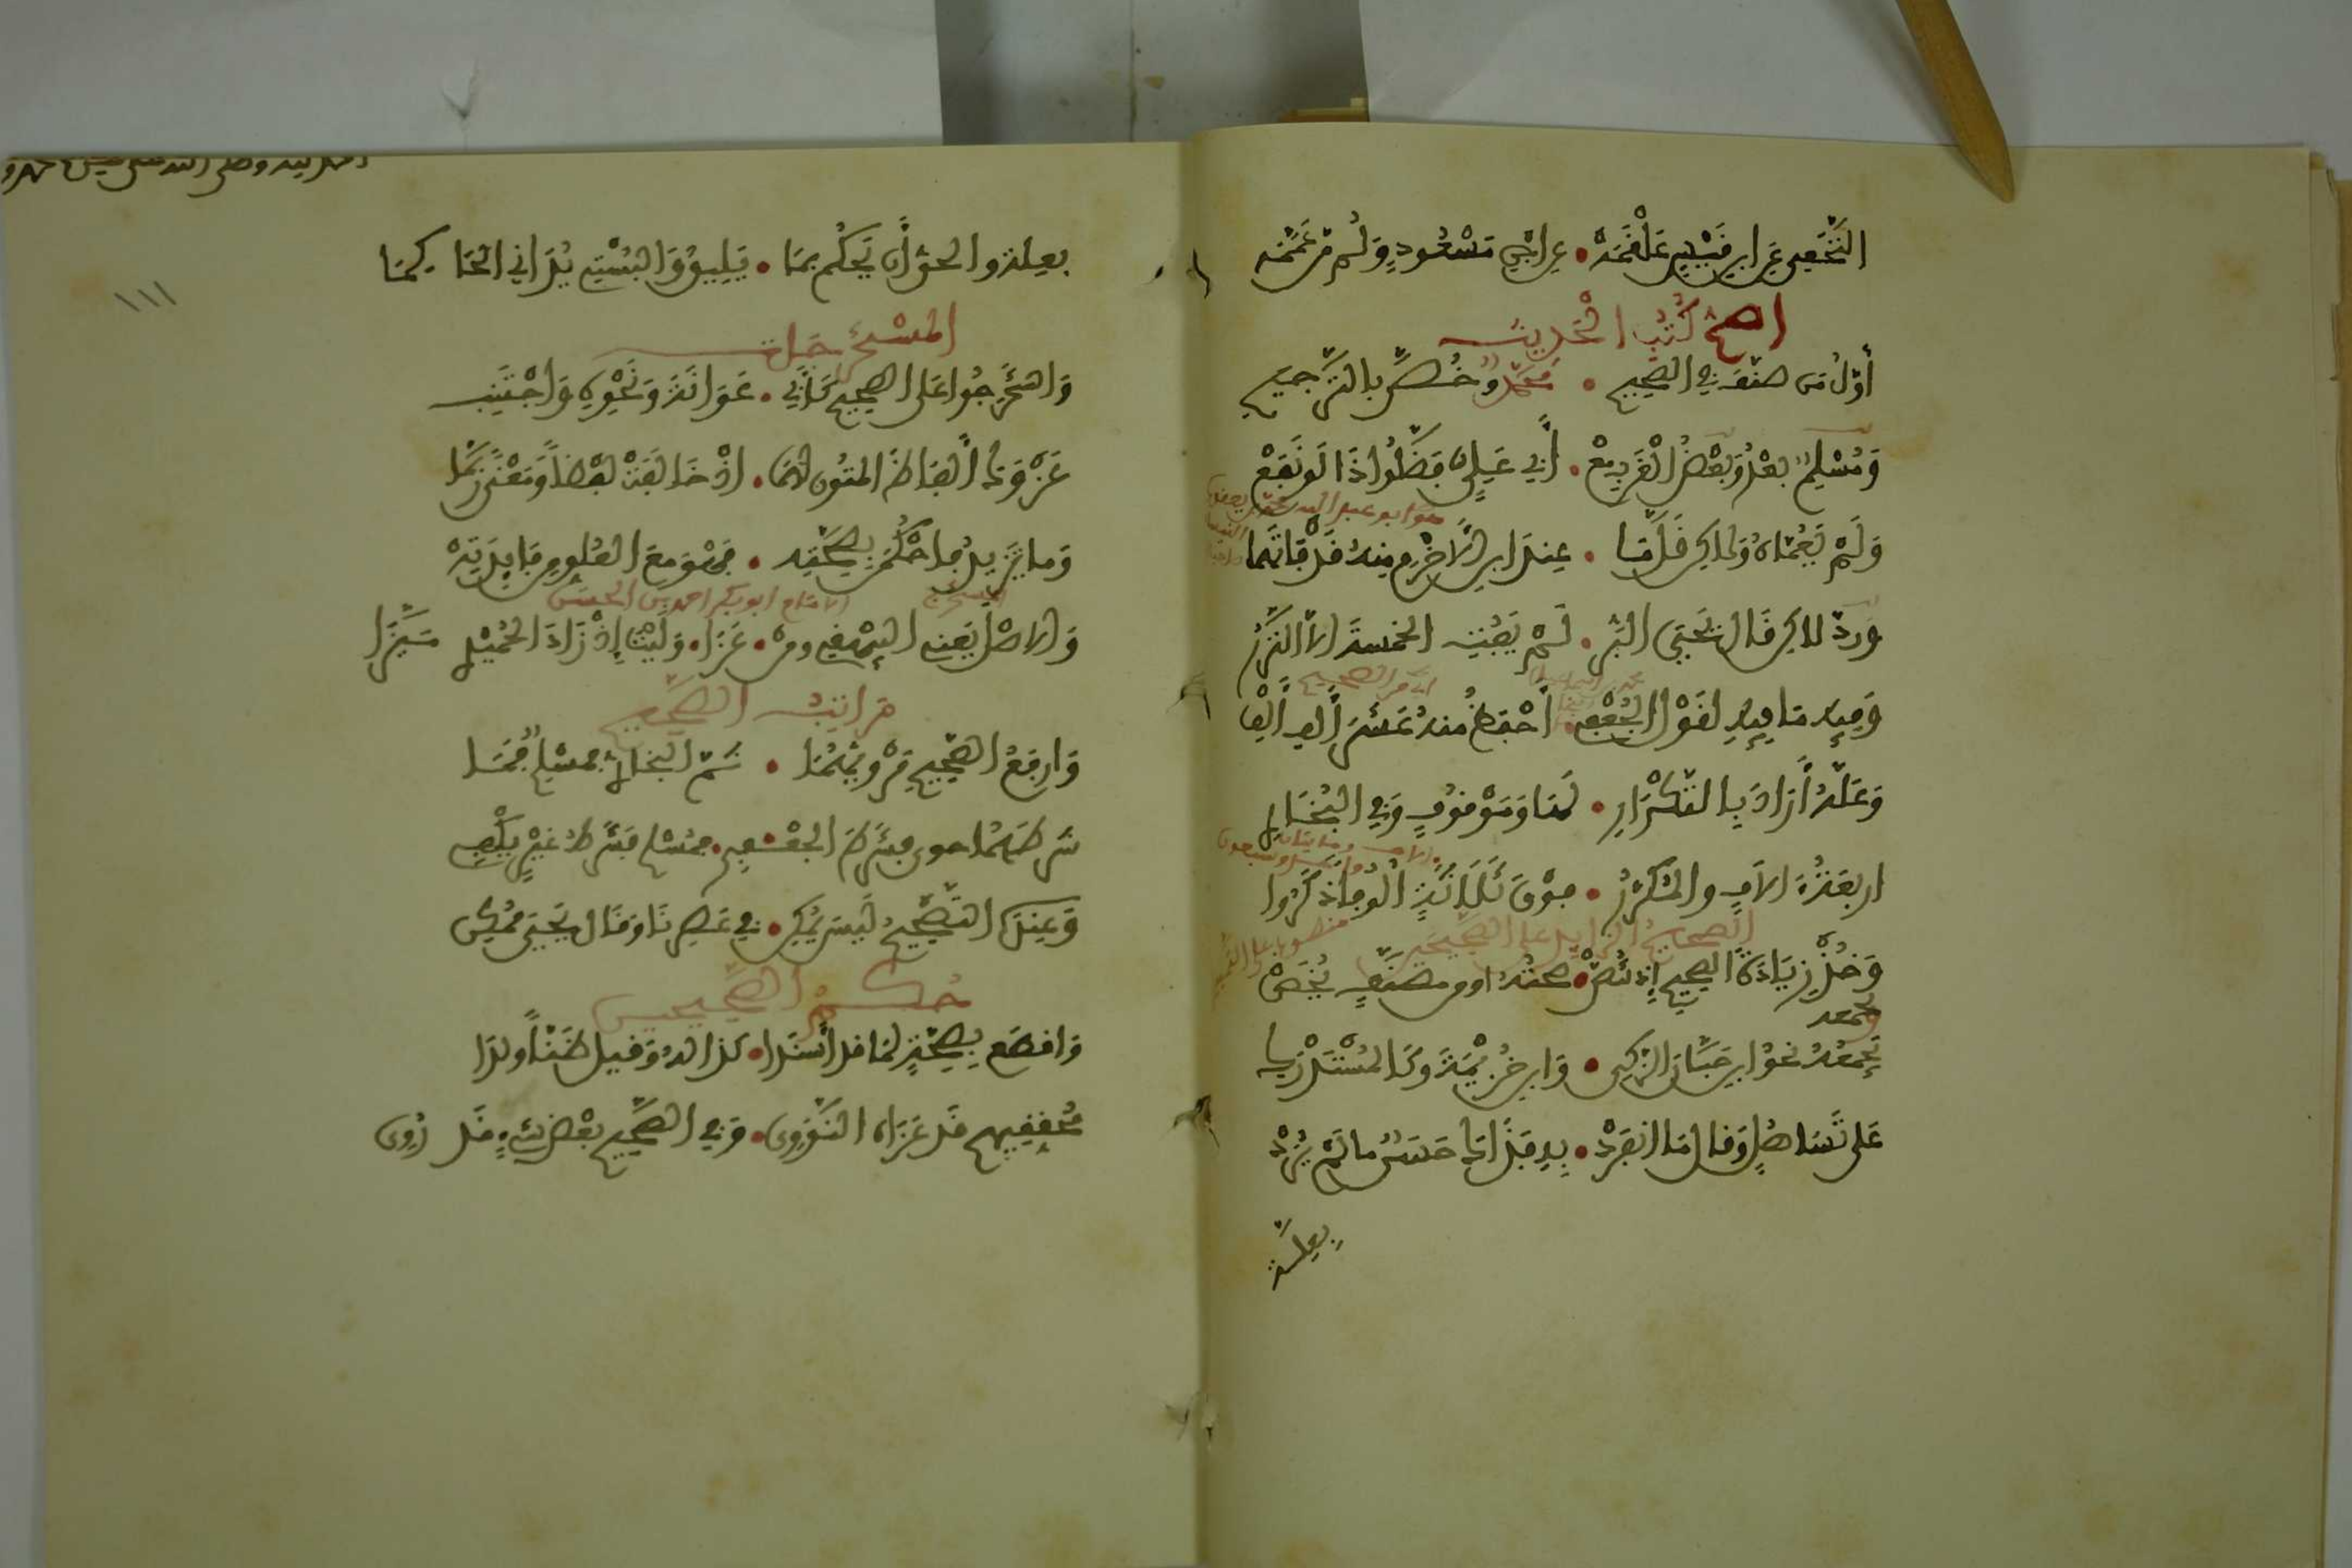 النَّخَعِي عَنِ ابْنِ قَيْسٍ عَلْقَمَهْ • عن ابن مَسْعُودٍ وَلُمْ مَنْ عَمَّمَهْ
اصح كُتُبِ الْحَدِيثِ
أَوّلُ مَن صنّفَ في الصَّحِيحِ • مُحَمَّدٌ وخُصَّ بالتَّرجيحِ
وَمُسْلِمٌ بعْدُ وَبَعْضُ الْغَرْبِ مَعْ • أَبِي عَلِيٍّ فَضَّلُوا ذَا لَوْ نَفَعْ
هو ابو عبد الله محمد بن يعقوب
وَلَمْ يَعُمَّاهُ وَلٰكِن قَلَّمَا • عِندَ ابنِ الاَخْرَمِ مِنهُ قَدْ فَاتَهما
ورُدّ لٰكِن قَالَ يَحْيَى البَرُّ • لَمْ يَفُتِ الخمسةَ الاّ النَّزْرُ
وَفِيهِ مَا فِيهِ لقَوْلِ الجُعْفِي • أَحْفَظُ منهُ عَشْرَ أَلْفِ أَلْفِ
وَعَلَّهُ أَرَادَ بِالتَّكْرَارِ • لَهَا وَمَوْقُوفٍ وَفي البُخَارِي
اربعَةُ الآلافِ والمُكَرَّرُ • فوْقَ ثَلاَثَةٍ أُلُوفاً ذَكَرُوا
الصحيحُ الزايد على الصَّحِيحَيْنِ
وَخُذْ زِيَادَةَ الصحيحِ إِذ تُنَصّْ • صحتُهُ اومن مصنَّفٍ يُخَصّْ
بجمعه
بِجَمْعِهِ نحوُ ابن حِبَّانَ الزَّكِي • وَابنِ خُزَيْمَةَ وكَالمُسْتَدْرَكِ
عَلى تَسَاهُلٍ وقال مَا انفَرَدْ • بِهِ فَذَاكَ حَسَنٌ ما لَمْ يُرَدْ
بعلة
بعِلةٍ والحقُّ أَن يُحْكَم بِمَا • يَلِيقُ وَالبُسْتِي يُدَانِي الحَاكِمَا
المسْتَخْرَجَات
وَاسْتَخْرَجُوا عَلى الصحيحِ كَأَبِي • عَوَانَةَ وَنَحْوِهِ وَاجْتَنِبِ
عَزْوَكَ أَلفاظَ المتُونِ لَهُمَا • إِذْ خَالَفَتْ لَفْظاً وَمَعْنًى رُبَّمَا
وَما يَزِيدُ فاحْكُمَنْ بِصِحَّتِه • فَهْوَ مَعَ العُلُوِّ مِن فَايِدَتِهْ
الامام ابو بكر احمد بن الحسين
وَالاصْلَ يَعْنِي البَيْهَقِي ومنْ • عَزَا • وَلَيْتَ إِذْ زَادَ الحُمَيْدِي مَيَّزَا
مَرَاتِبُ الصَّحِيح
وَارفَعُ الصَّحِيحِ مَرْوِيُّهُمَا • ثُمَّ البُخَارِيُّ فَمُسْلِمٌ فَمَا
شَرطَهُما حوى فَشَرْطَ الجُعْفِي • فمُسْلِمٍ فَشَرْطُ غَيْرٍ يَكْفِي
وَعِندَهُ التَّصْحِيحُ لَيْسَ يُمْكِنُ • في عَصرِنَا وَقَال يَحْيَى مُمْكِنُ
حُكْمُ الصَّحِيحَيْنِ
وَاقطَع بِصِحَّةٍ لمَا قد أَسندَا • كذا لهُ وَقيلَ ظَنّاً وَلدَا
مُحَقِّقِيهِم قَد عَزَاهُ النَّوَوِي • وَفي الصَّحِيحِ بَعْضُ شَيْءٍ قَد رُوِي